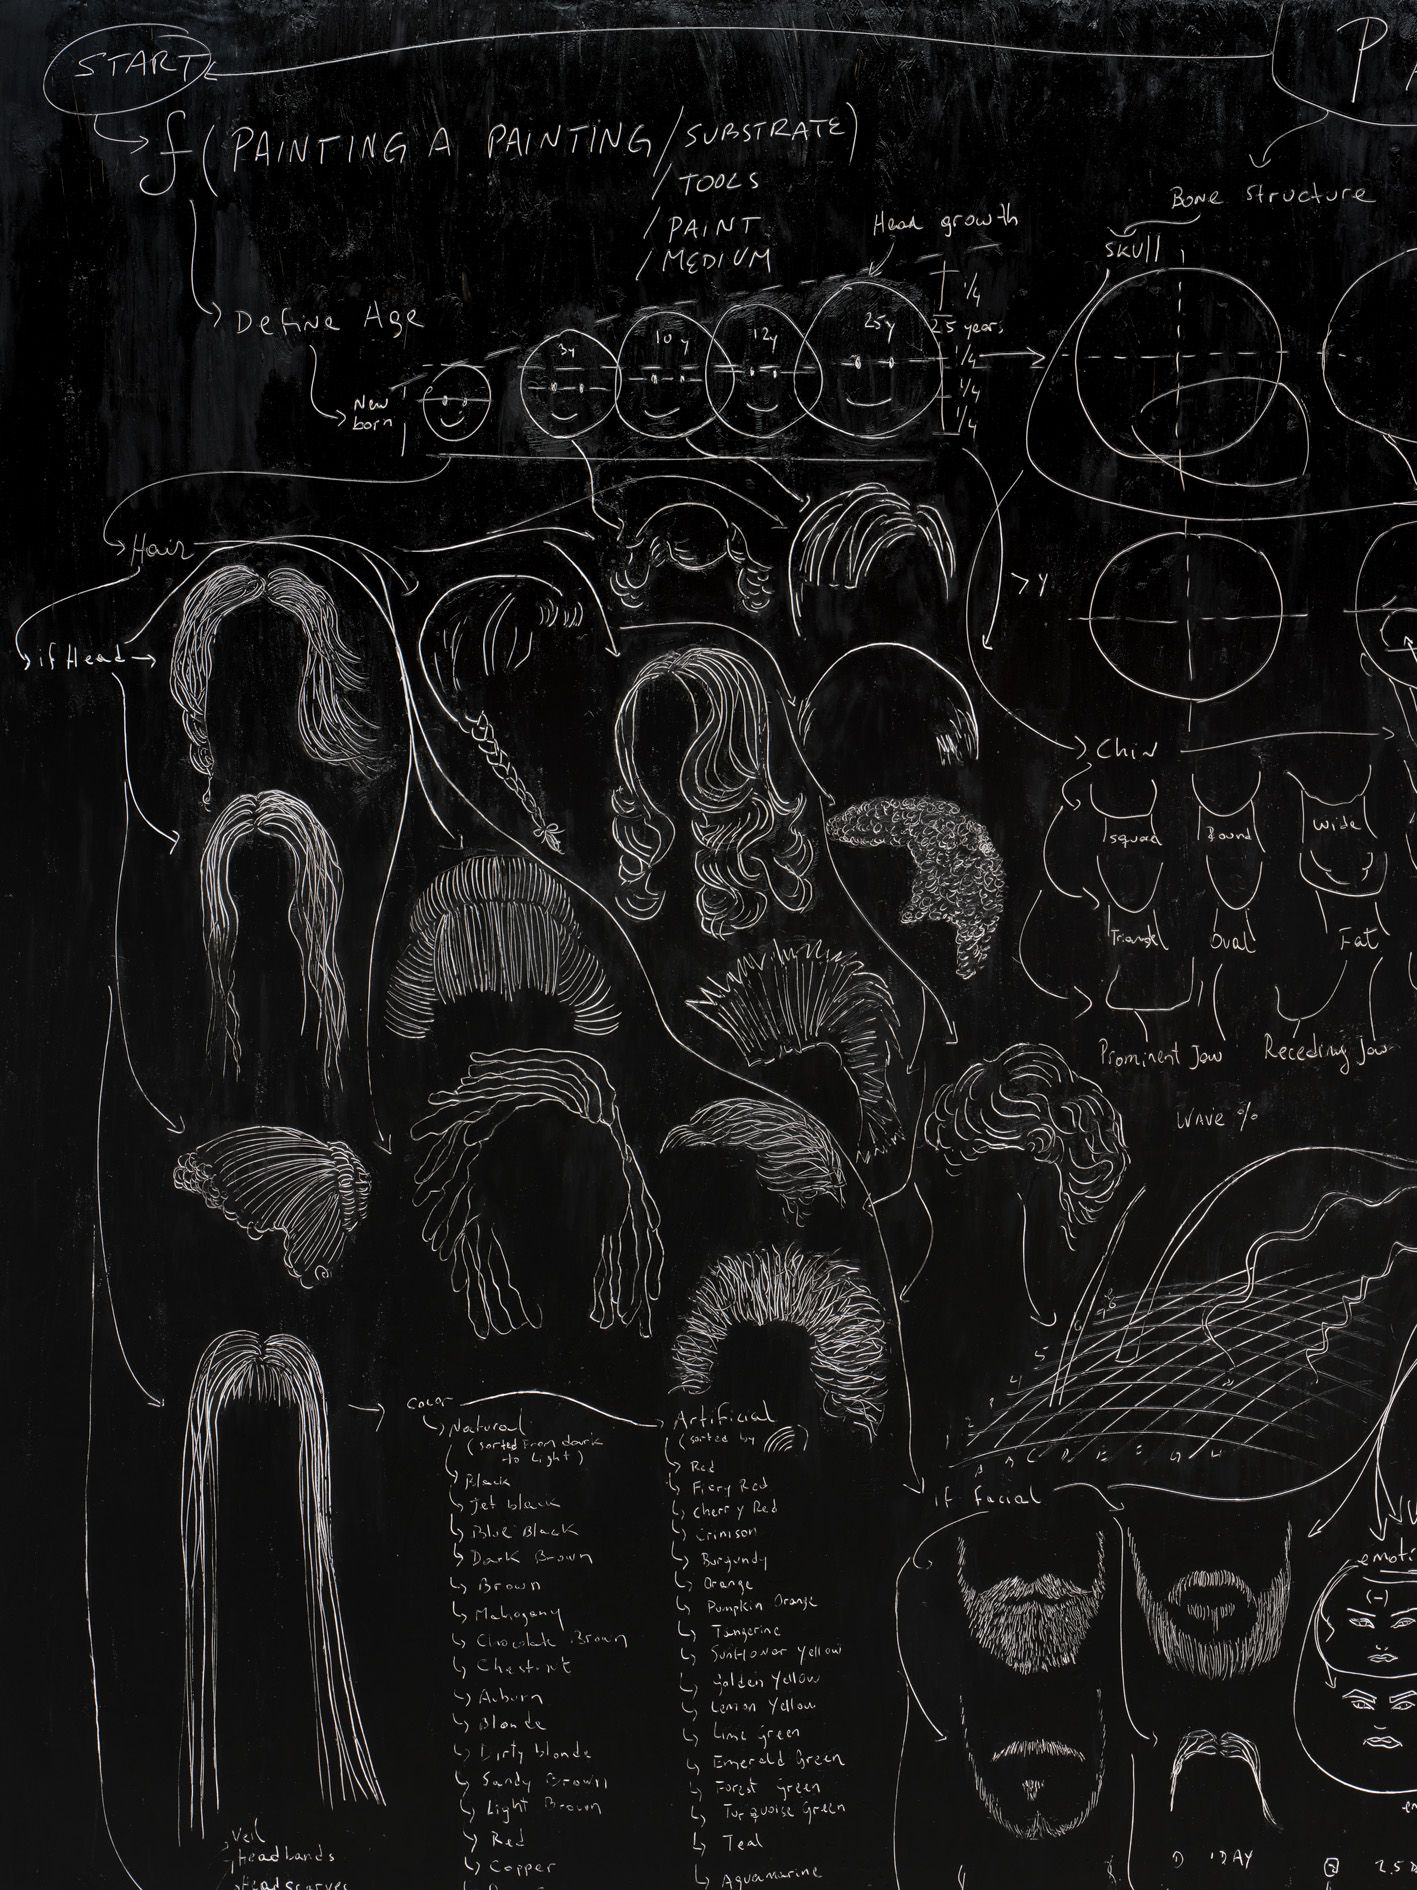 START
P
f(PAINTING A PAINTING/SUBSTRATE)
/TOOLS
/PAINT
/MEDIUM
Bone structure
Head growth
SKull
1/4
25 years
1/4
1/4
1/4
Define Age
New born
3y
10y
12y
25y
Hair
if Head
>Y
Chin
Round
Wide
Oval
Fat
Prominent Jaw
Receding Jaw
WAVE %
Color
Natural
(sorted from dark
to Light)
Black
Jet black
Blue Black
Dark Brown
Brown
Mahogany
Chocolate Brown
Chestnut
Auburn
Blonde
Dirty blonde
Sandy Brown
Light Brown
Red
Copper
Artificial
(sorted by
Red
Fiery Red
Cherry Red
Crimson
Burgundy
Orange
Pumpkin Orange
Tangerine
Sunflower Yellow
Golden Yellow
Lemon Yellow
Lime green
Emerald Green
Forest Green
Turquoise Green
Teal
Aquamarine
if facial
emoti
(-)
Veil
Headbands
Headscarves
1DAY
2.5